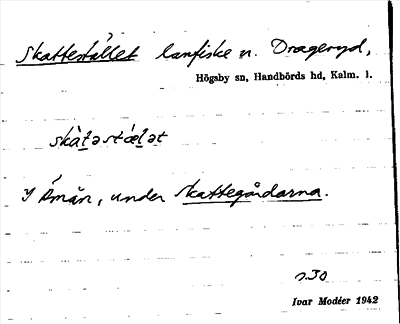 Skattestället lanfiske n. Drageryd,
Högsby sn, Handbörds hd, Kalm. l.
skàt̠əstǽl̠ət
I Åmån, under Skattegårdarna.
s.30
Ivar Modéer 1942